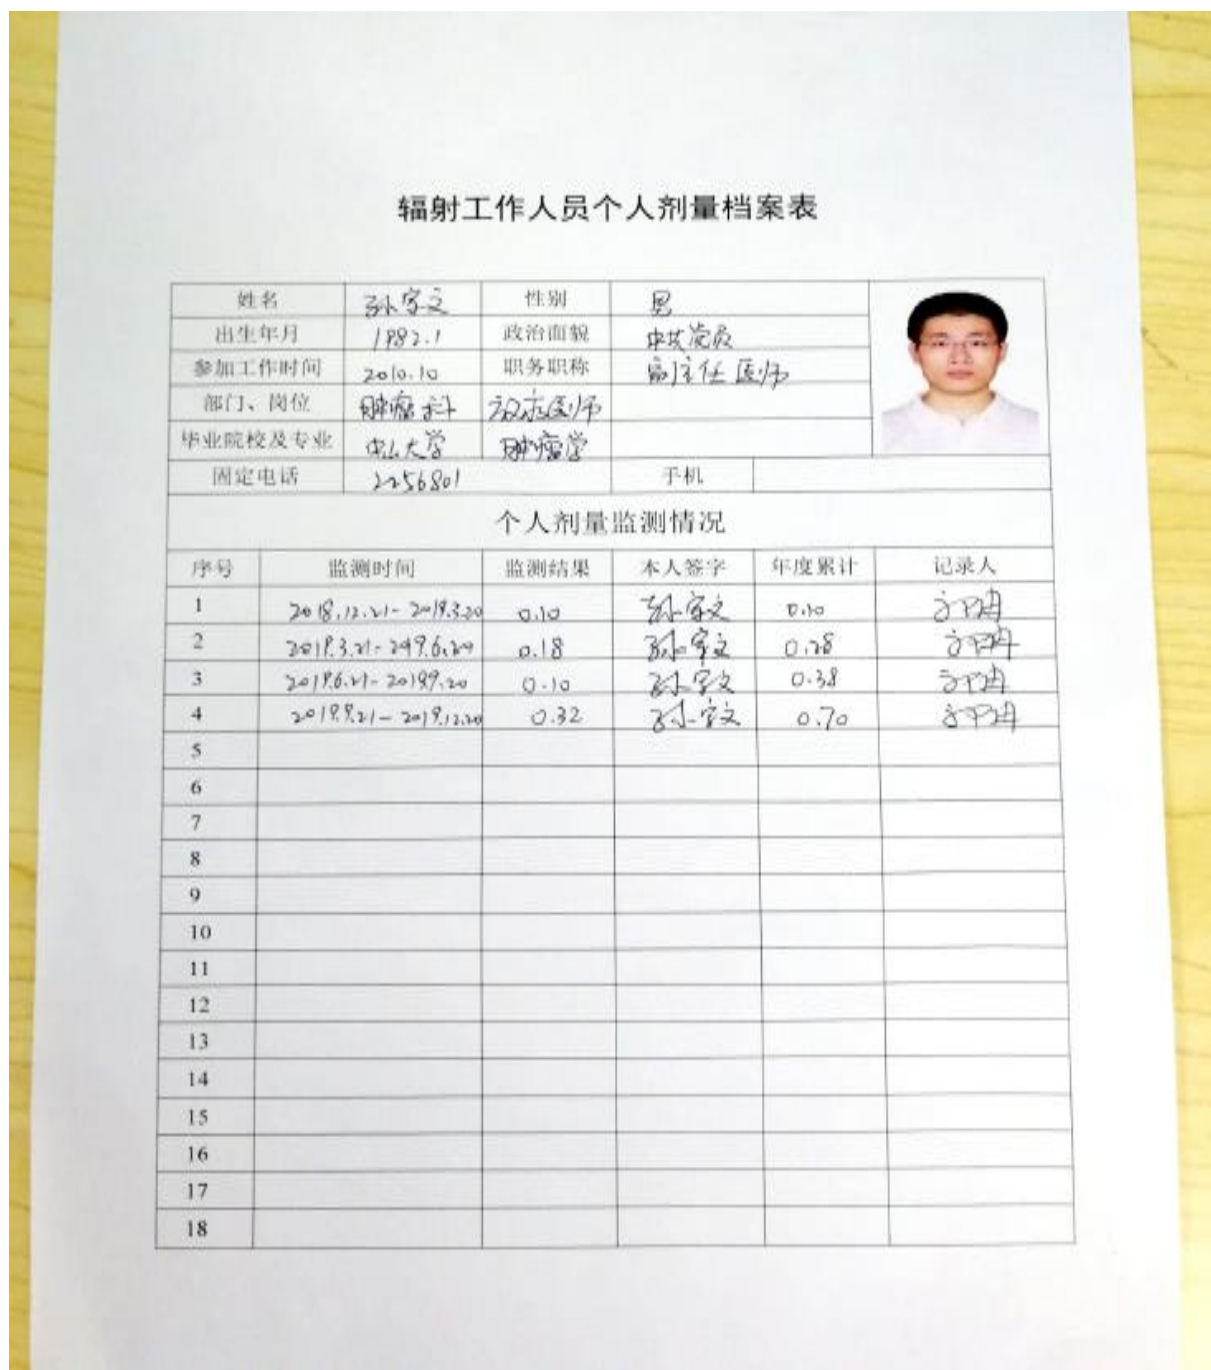 辐射工作人员个人剂量档案表
姓名 孙家文 性别 男
出生年月 1982.1 政治面貌 中共党员
参加工作时间 2010.10 职务职称 副主任医师
部门、岗位 肿瘤科 放疗医师
毕业院校及专业 中山大学 肿瘤学
固定电话 2256801 手机
个人剂量监测情况
序号 监测时间 监测结果 本人签字 年度累计 记录人
1 2018.12.21-2019.3.20 0.10 孙家文 0.10
2 2019.3.21-2019.6.20 0.18 孙家文 0.28
3 2019.6.21-2019.9.20 0.10 孙家文 0.38
4 2019.9.21-2019.12.20 0.32 孙家文 0.70
5
6
7
8
9
10
11
12
13
14
15
16
17
18